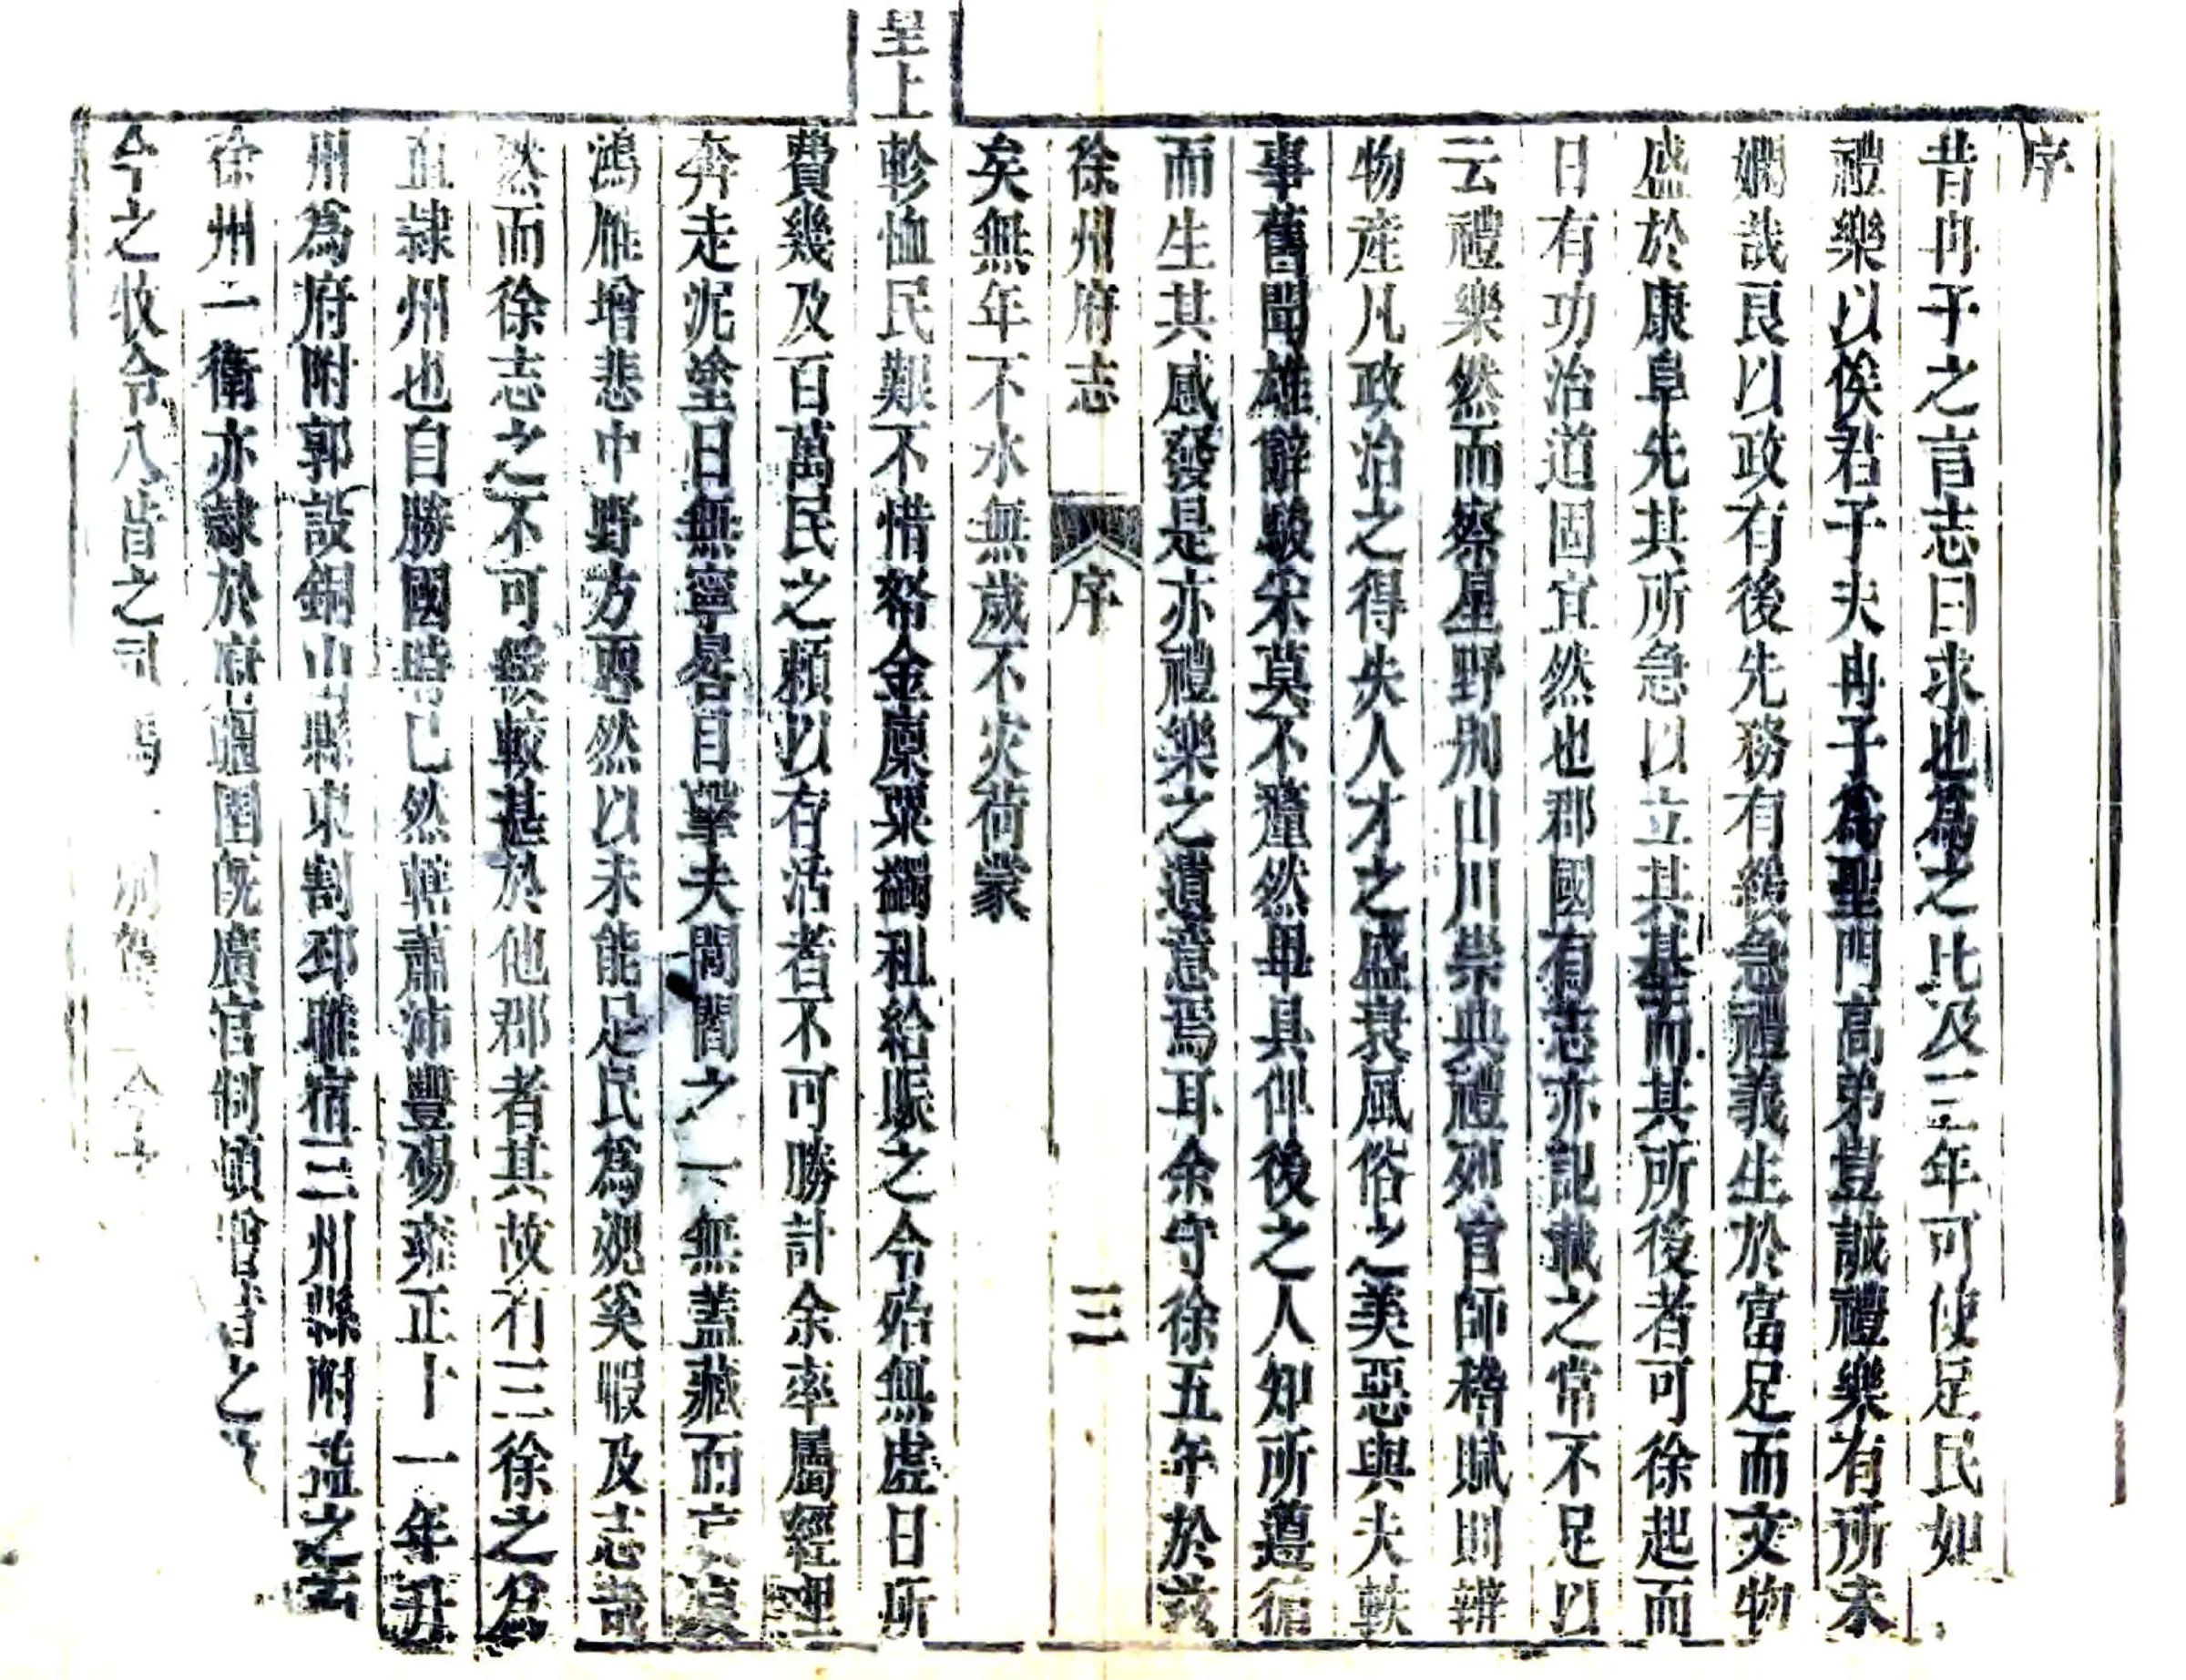 序
昔冉子之言志曰求也爲之比及三年可使足民如
禮樂以俟君子夫冉子爲聖門高弟豈誠禮樂有所未
嫻哉良以政有後先務有緩急禮義生於富足而文物
盛於康阜先其所急以立其基而其所後者可徐起而
日有功治道固宜然也郡國有志亦記載之常不足以
云禮樂然而察星野別山川崇典禮列官師稽賦則辨
物產凡政治之得失人才之盛衰風俗之美惡與夫軼
事舊聞雄辭駿采莫不瞳然畢具俾後之人知所遵循
而生其感發是亦禮樂之遺意焉耳余守徐五年於茲
徐州府志 序 三
矣無年不水無歲不災荷蒙
呈上軫恤民艱不惜帑金廩粟蠲租給賑之令殆無虛日所
費幾及百萬民之賴以存活者不可勝計余率屬經理
奔走泥塗日無寧晷目擊夫閭閻之一無蓋藏而
鴻雁增悲中野方惄然以未能足民爲愧奚暇及志哉
然而徐志之不可緩較甚於他郡者其故有三徐之爲
直隷州也自勝國時已然轄蕭沛豐碭雍正十一年升
州爲府附郭設銅山縣東割邳睢宿三州縣附益之雲
徐州二衛亦隷於府疆圉旣廣官制頓增昔之
今之牧令八昔之司馬一別駕一今